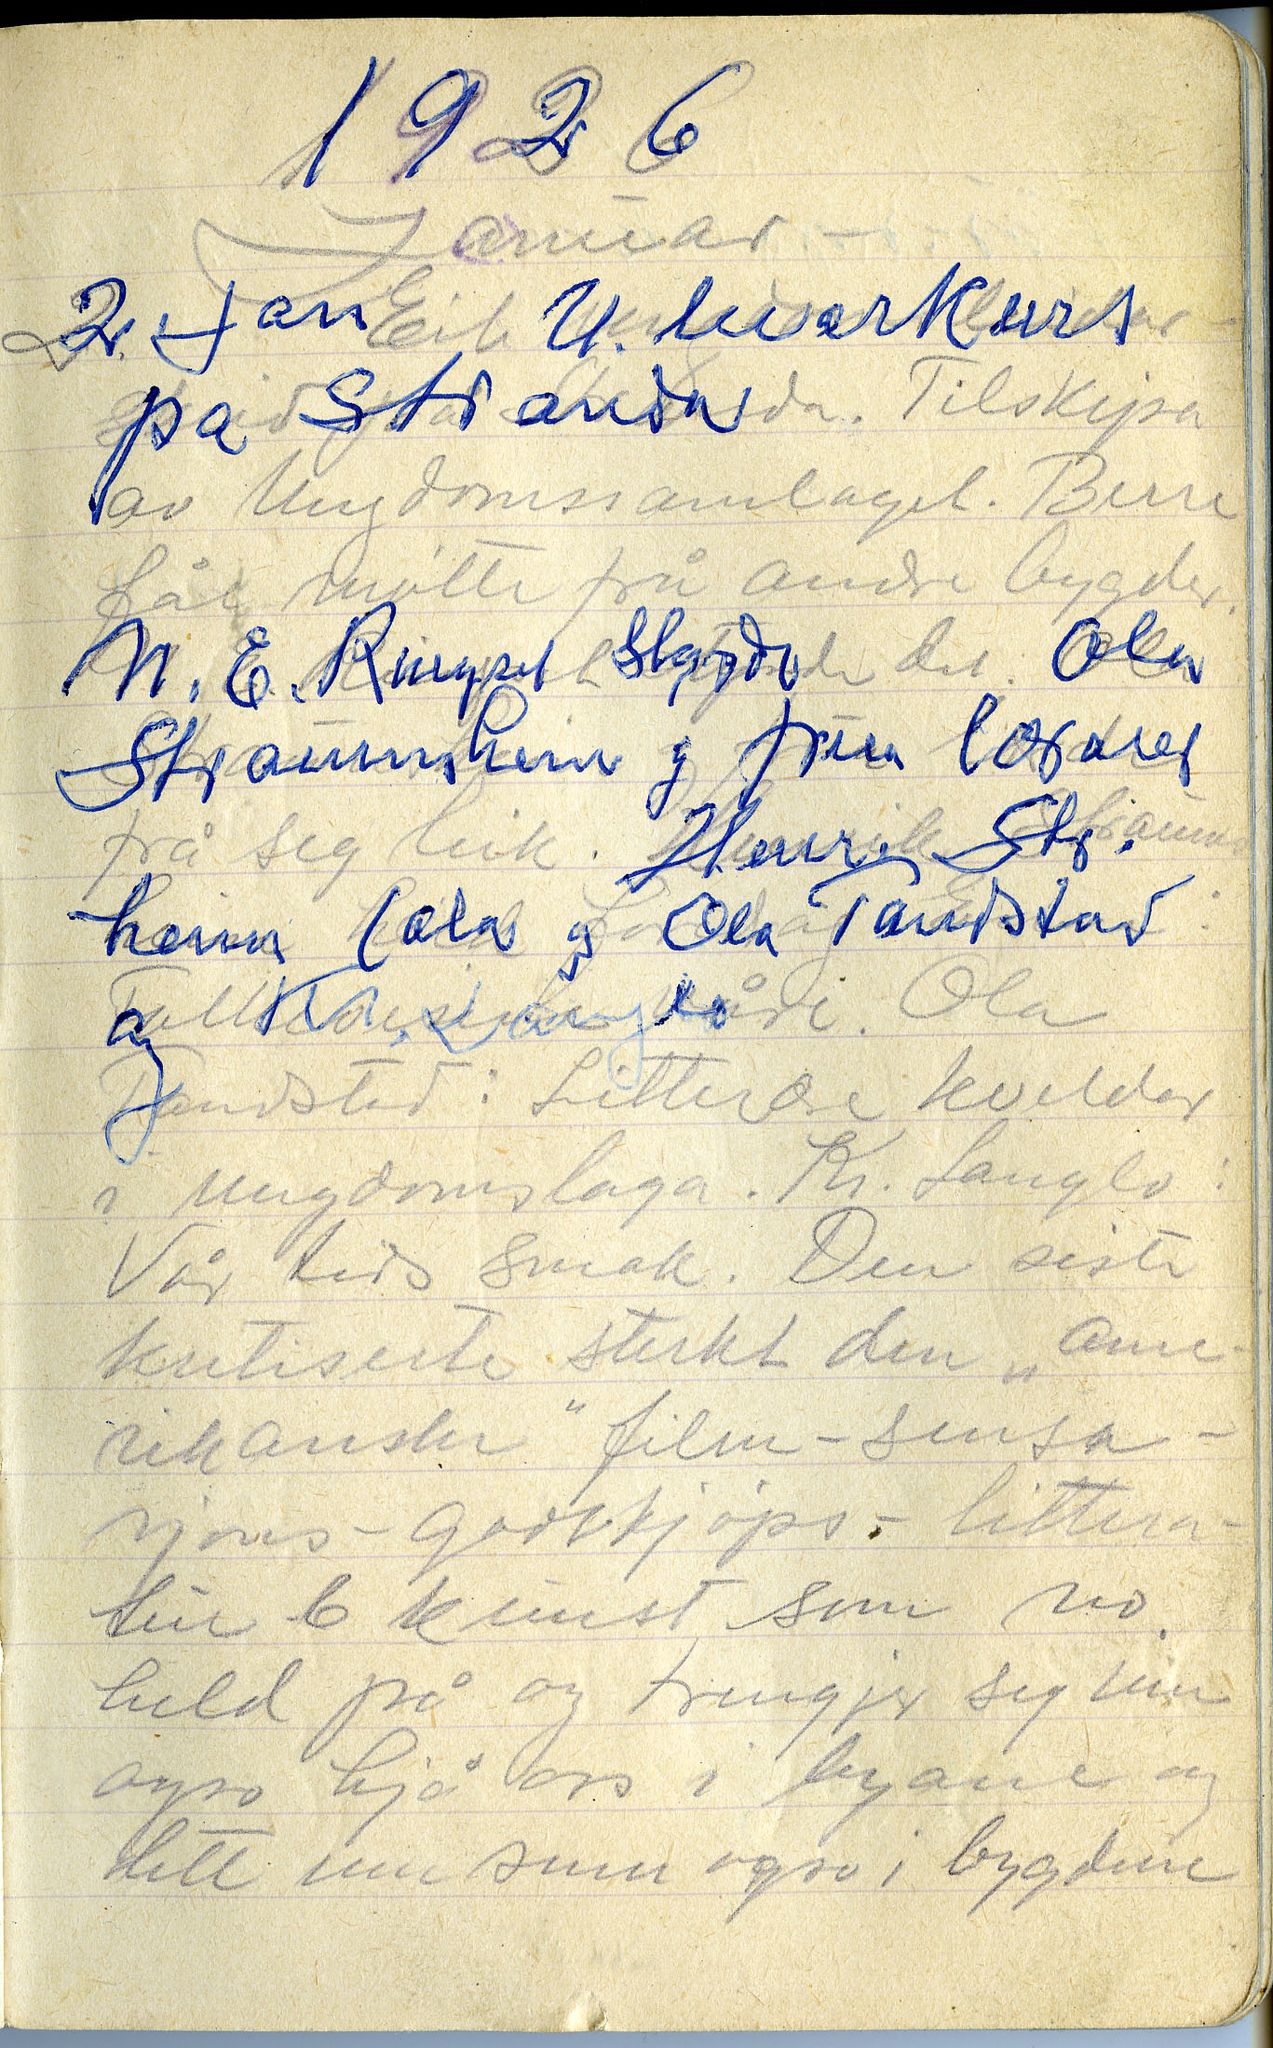 1926
Januar -
2. Jan U. leiarkurs
på Stranda
Tilskipa
av Ungdomssamlaget. Berre
fåe møtte frå andre bygder.
M. E. Ringset styrde det. Ola
Straumsheim og frua lærar
frå seg leik. Henrik Str.
heim tala og Ola Tandstad
og Kr. Langlo
Ola
Tandstad: Litterære kveldar
i ungdomslaga. Kr. Langlo:
Vår tids smak. Den siste
kritiserte sterkt den „ame-
rikanske" film- sensa-
sjons- godtkjøps- littera-
tur & kunst som no
held på og trengjer seg inn
ogso hjå oss i byane og
lett um senn ogso i bygdene